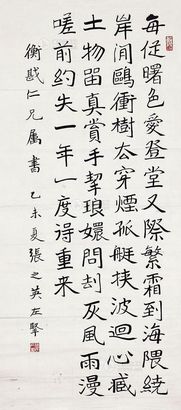 每從曙色愛登堂又際繁霜到海隈繞
岸間鷗衝樹去穿煙孤艇挟波迴心臧
土物畱真賞手挈琅嬛問刦灰風雨漫
嗟前約失一年一度得重来
衡賊仁兄属書 乙未夏張之英左擎